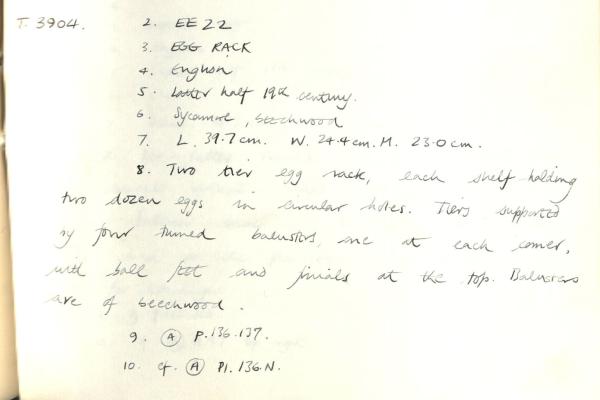 T. 3904. 2. EE 22
3. EGG RACK
4. English
5. Latter half 19th century.
6. Sycamore, beechwood
7. L. 39.7 cm. W. 24.4 cm. H. 23.0 cm.
8. Two tier egg rack, each shelf holding
two dozen eggs in circular holes. Tiers supported
by four turned balusters, one at each corner,
with ball feet and finials at the top. Balusters
are of beechwood.
9. (A) P. 136.137.
10. cf. (A) Pl. 136.N.